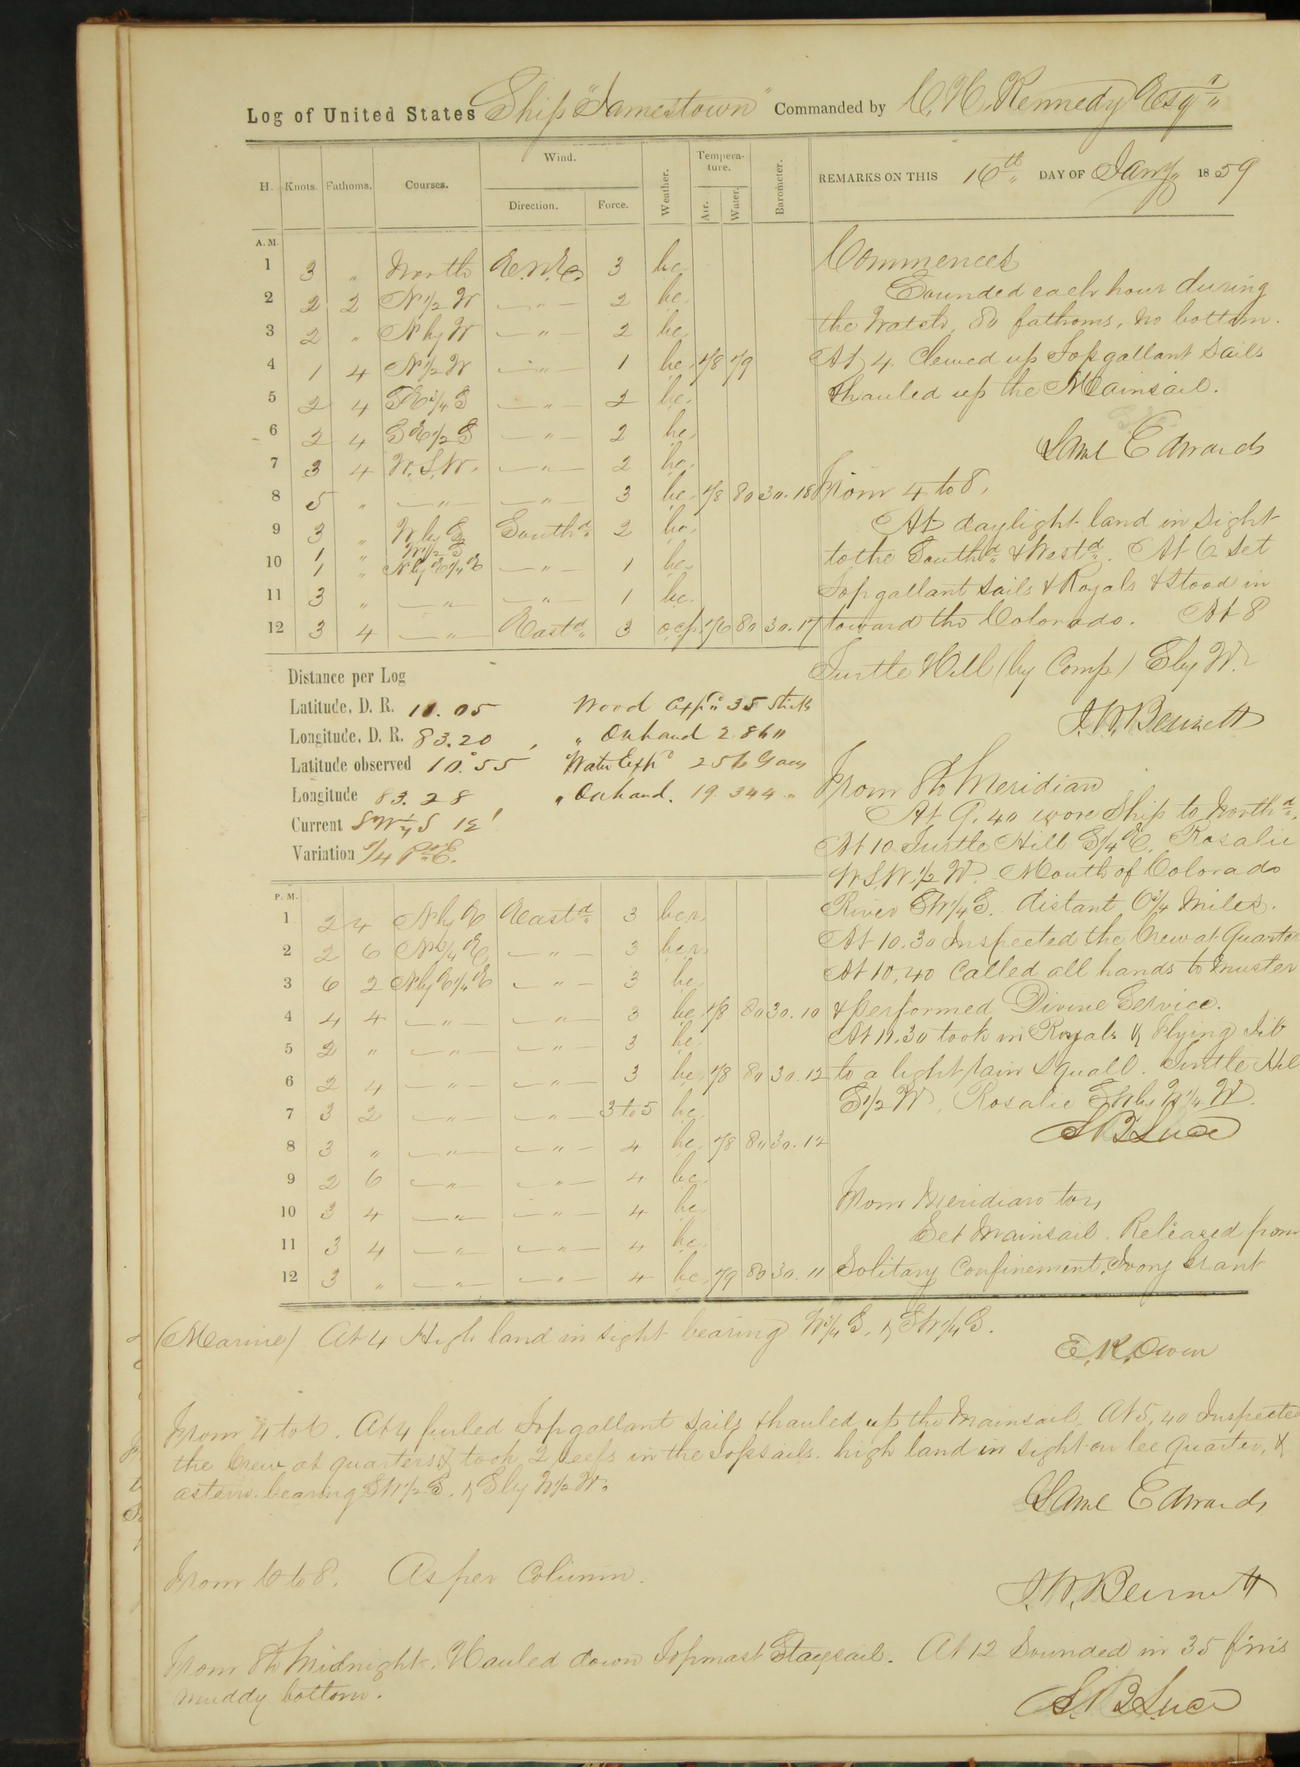 Log of United States Ship "Jamestown" Commanded by C. H. Kennedy Esqr
H. Knots. Fathoms. Courses. Wind. Direction. Force. Weather. Tempera-ture. Air. Water. Barometer.
REMARKS ON THIS 16th DAY OF Jany 1859
A. M.
1 3 " North E.N.E. 3 bc.
2 2 2 N 1/2 W — " — 2 bc.
3 2 " N by W — " — 2 bc.
4 1 4 N 1/2 W — " — 1 bc. 78 79
5 2 4 — " — 2 bc.
6 2 4 S E 1/2 S — " — 2 bc.
7 3 4 W.S.W. — " — 2 bc.
8 5 " — " — — " — 3 bc. 78 80 30.18
9 3 " W by S Southd 2 bc.
1 " W 1/2 S
10 1 " N by E 1/4 E — " — 1 bc.
11 3 " — " — — " — 1 bc.
12 3 4 — " — Eastd 3 o.c.p. 76 80 30.17
Commences
Sounded each hour during
the Watch, 80 fathoms, no bottom.
At 4 Clewed up Topgallant Sails
& hauled up the Mainsail.
Saml Edwards
From 4 to 8,
At daylight land in Sight
to the Southd & Westd. At 6 Set
Topgallant Sails & Royals & Stood in
toward the Colorado. At 8
Turtle Hill (by Comp) S by W.
J. W. Bennett
From 8 to Meridian
At 9.40 wore Ship to Northd.
At 10 Turtle Hill S 1/4 E. Rosalie
W.S.W. 1/2 W. Mouth of Colorado
River SW 1/4 S. distant 6 3/4 Miles.
At 10.30 Inspected the Crew at Quarters
At 10.40 Called all hands to Muster
& performed Divine Service.
At 11.30 took in Royals & Flying Jib
to a light rain Squall. Turtle Hill
S 1/2 W, Rosalie SW by W 1/4 W.
S. B. Luce
Distance per Log
Latitude, D. R. 11.05 Wood Expd 35 Sticks
Longitude, D. R. 83.20 " On hand 2860
Latitude observed 10.55 Water Expd 256 Galls
Longitude 83.28 " On hand. 19.344 "
Current
Variation 3/4 Pt E.
P. M.
1 2 4 N by E Eastd 3 bcr.
2 2 6 — " — 3 bcr.
3 6 2 N by E 1/4 E — " — 3 bc.
4 4 4 — " — — " — 3 bc. 78 80 30.10
5 2 " — " — — " — 3 bc.
6 2 4 — " — — " — 3 bc. 78 80 30.12
7 3 2 — " — — " — 3 to 5 bc.
8 3 " — " — — " — 4 bc. 78 80 30.12
9 2 6 — " — — " — 4 bc.
10 3 4 — " — — " — 4 bc.
11 3 4 — " — — " — 4 bc.
12 3 " — " — — " — 4 bc. 79 80 30.11
From Meridian to 4
Set Mainsail. Released from
Solitary Confinement, Ivory Grant
(Marine) At 4 High land in sight bearing W 3/4 S. & SW 1/4 S.
E. K. Owen
From 4 to 6. At 4 furled Topgallant Sails & hauled up the Mainsail. At 5.40 Inspected
the Crew at quarters & took 2 reefs in the Topsails. high land in sight on lee Quarter, &
astern bearing SW 1/2 S. & S by W 1/2 W.
Saml Edwards
From 6 to 8. As per Column.
J. W. Bennett
From 8 to Midnight. Hauled down Topmast Staysail. At 12 Sounded in 35 fms
muddy bottom.
S. B. Luce